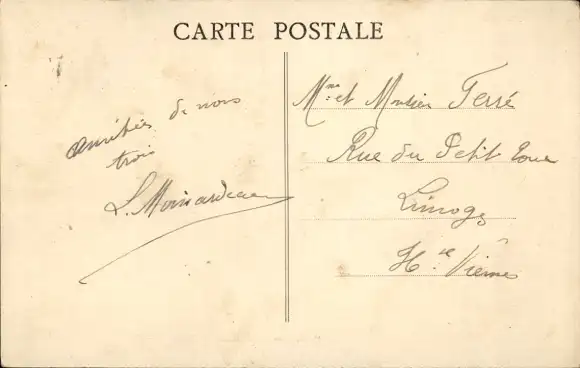 CARTE POSTALE
amitiés de nous
trois
Mme et Terré
Rue du Petit Tour
Limoges
Hte Vienne